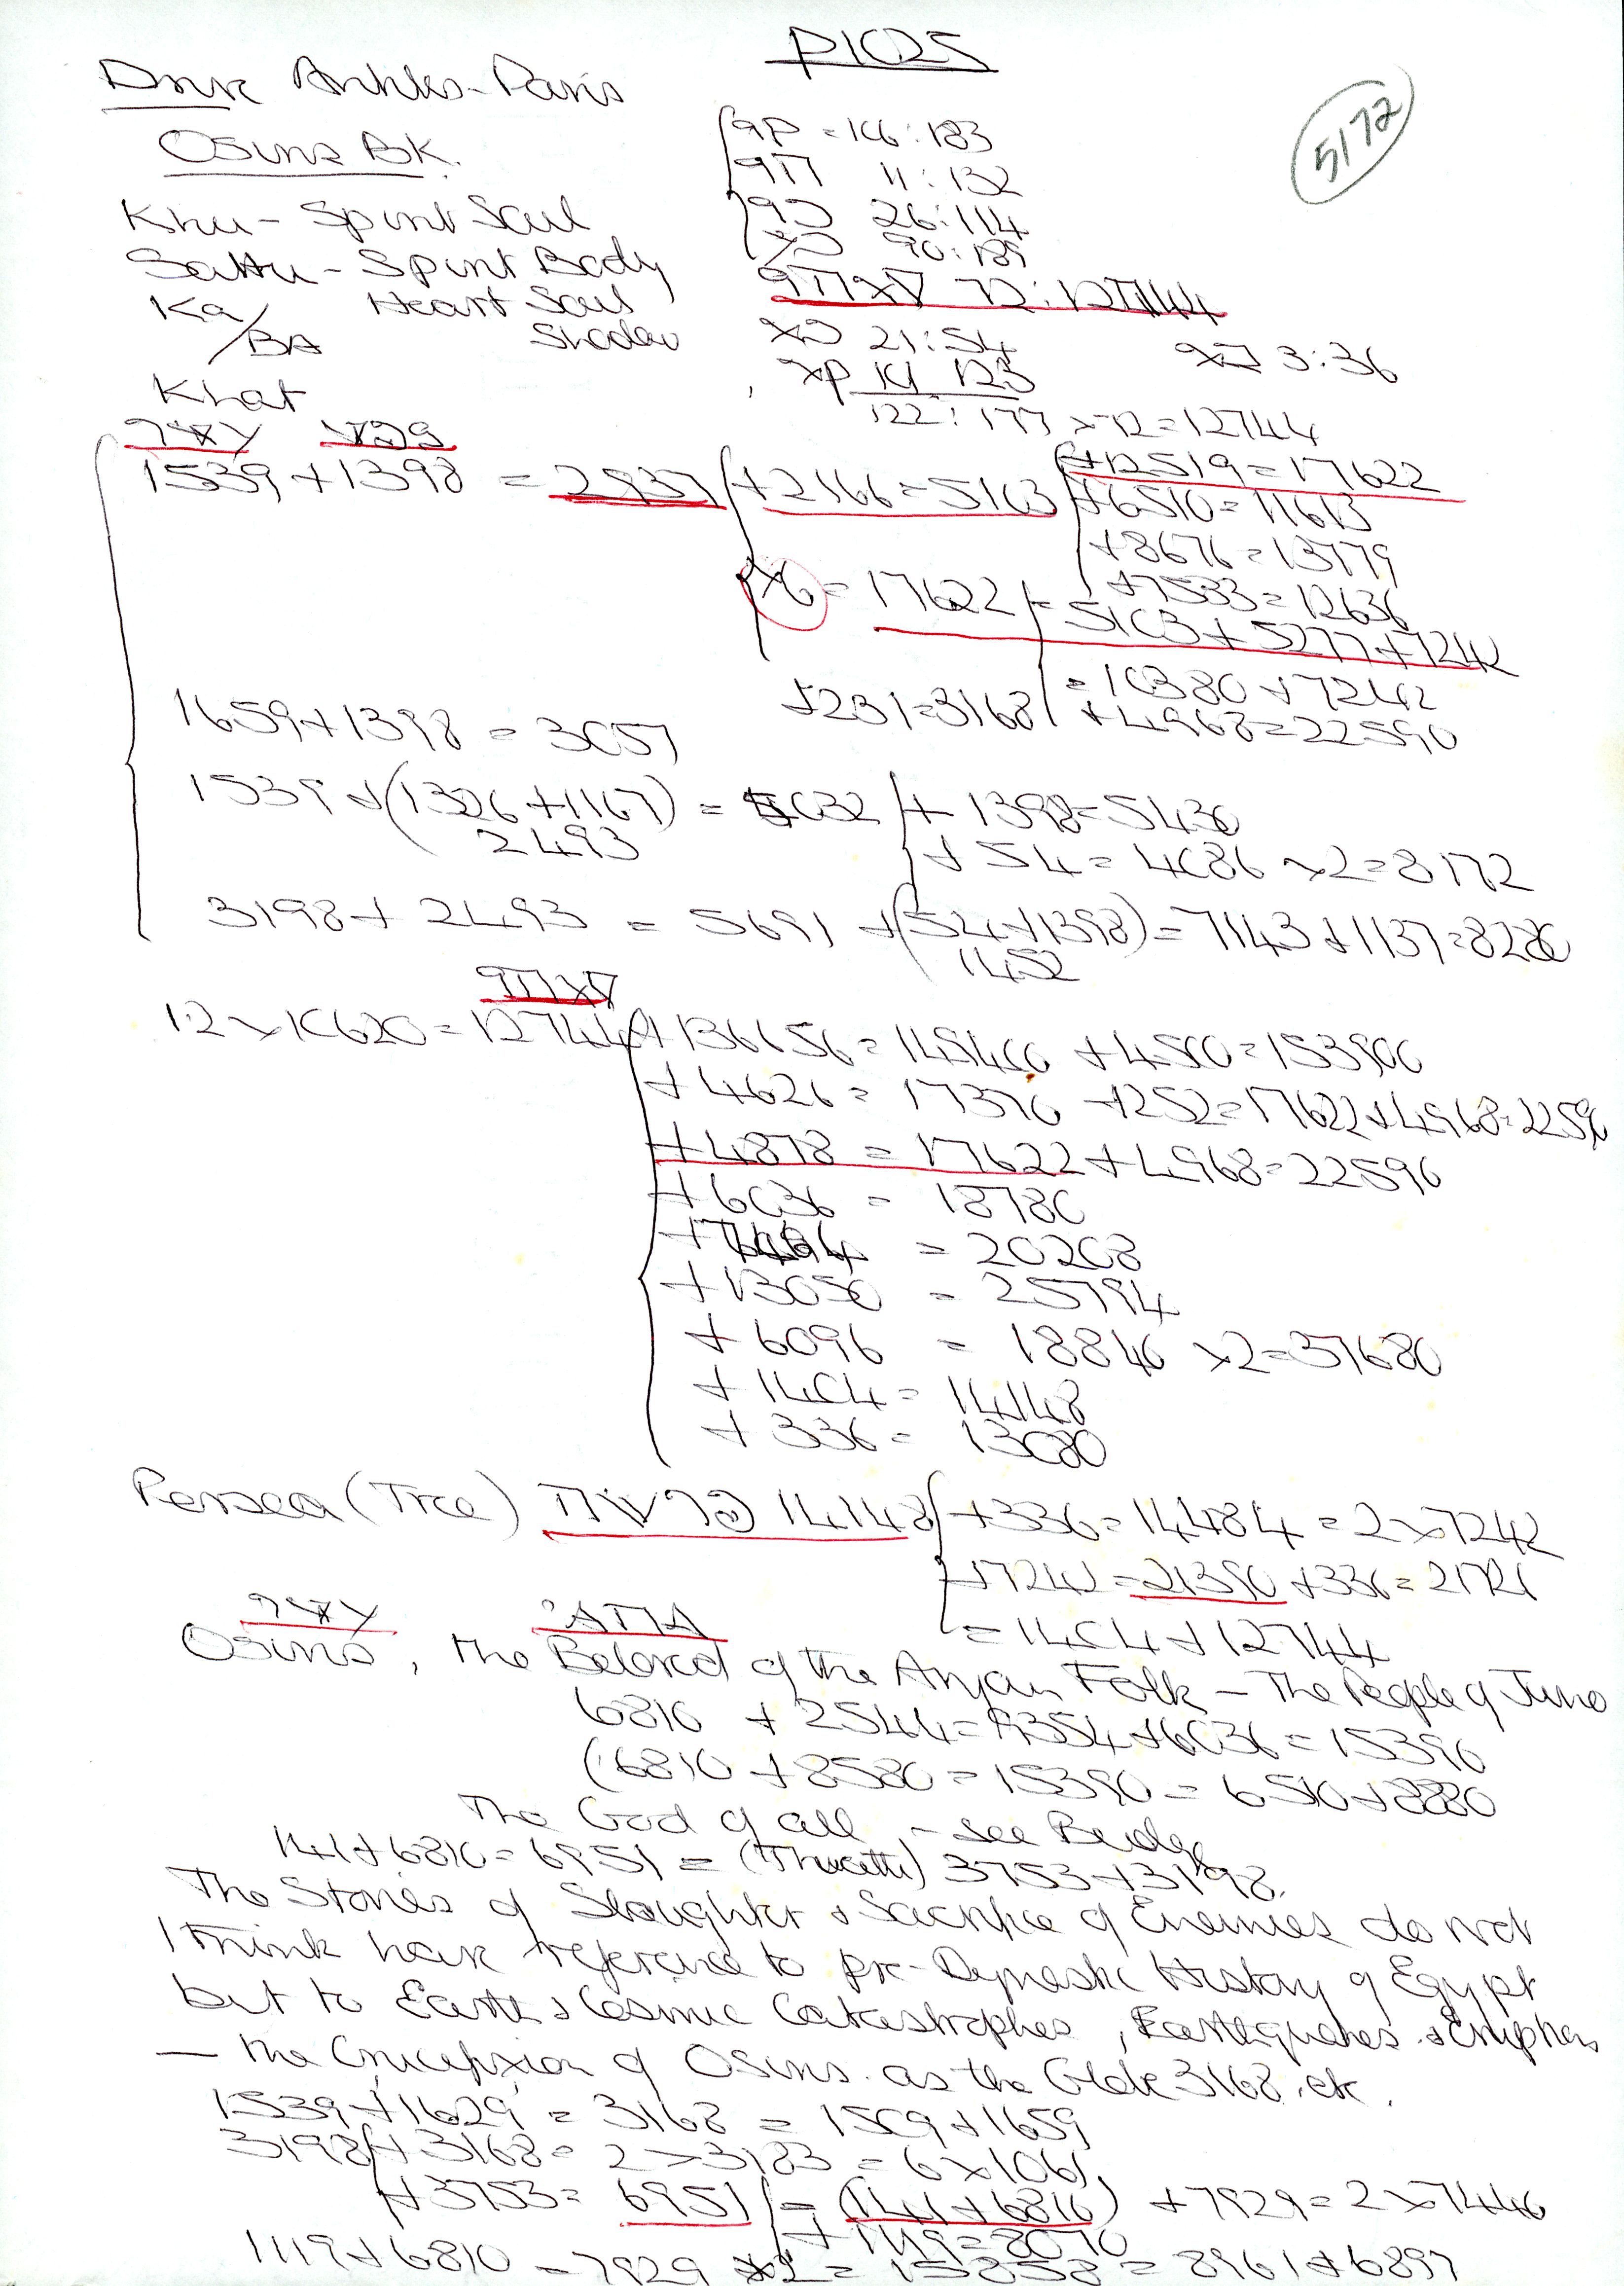 P1025
5172
Osiris BK.
Khu - Spirit Soul
Sahu - Spirit Body
Ka Heart Soul
/BA Shadow
Khat
106:183
11:132
26:114
90:189
72:12744
21:54
3:36
101 123
122:177 x 72 = 12744
1539 + 1398 = 2937 + 2166 = 5103 + 12519 = 17622
+ 6510 = 11613
+ 8676 = 13779
+ 7533 = 12636
x6 = 17622 = 5103 + 5277 + 7242
= 10380 + 7242
+ 231 = 3168 + 4968 = 22590
1659 + 1398 = 3057
1539 + (1326 + 1167) = 4032 + 1398 = 5430
2493 + 54 = 4086 x 2 = 8172
3198 + 2493 = 5691 + (54 + 1398) = 7143 + 1137 = 8280
1452
12 x 10620 = 12744 + 136656 = 149400 + 4500 = 153900
+ 4626 = 17370 + 252 = 17622 + 4968 = 22590
+ 4878 = 17622 + 4968 = 22590
+ 6036 = 18780
= 20208
+ 13050 = 25794
+ 6096 = 18840 x 2 = 37680
+ 1404 = 14148
+ 336 = 13080
Persea (Tree) 14148 + 336 = 14484 = 2 x 7242
+ 7242 = 21390 + 336 = 21726
= 1404 + 12744
Osiris, The Beloved of the Aryan Folk - The People of Juno
6810 + 2544 = 9354 + 6036 = 15390
(6810 + 8580 = 15390 = 6510 + 8880
The God of all - see Budge
141 + 6810 = 6951 = 3753 + 3198.
The Stories of Slaughter & Sacrifice of Enemies do not
I think have reference to pre-Dynastic History of Egypt
but to Earth & Cosmic Catastrophes, Earthquakes & Eruptions
— the Conception of Osiris as the Globe 3168. etc.
1539 + 1629 = 3168 = 1509 + 1659
3198 + 3168 = 2 x 3183 = 6 x 1061
+ 3753 = 6951 = (141 + 6810) + 7929 = 2 x 7440
+ 1119 = 8070
1119 + 6810 = 7929 x 2 = 15858 = 8961 + 6897